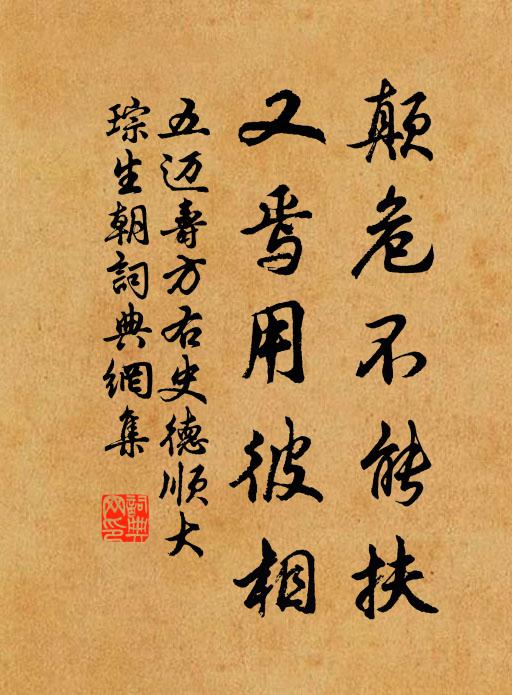 颠危不能扶
又焉用彼相
五迈寿方右史德顺大
琮生朝詞典網集
詞典
网印